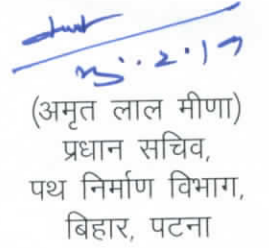 (अमृत लाल मीणा)
प्रधान सचिव,
पथ निर्माण विभाग,
बिहार, पटना